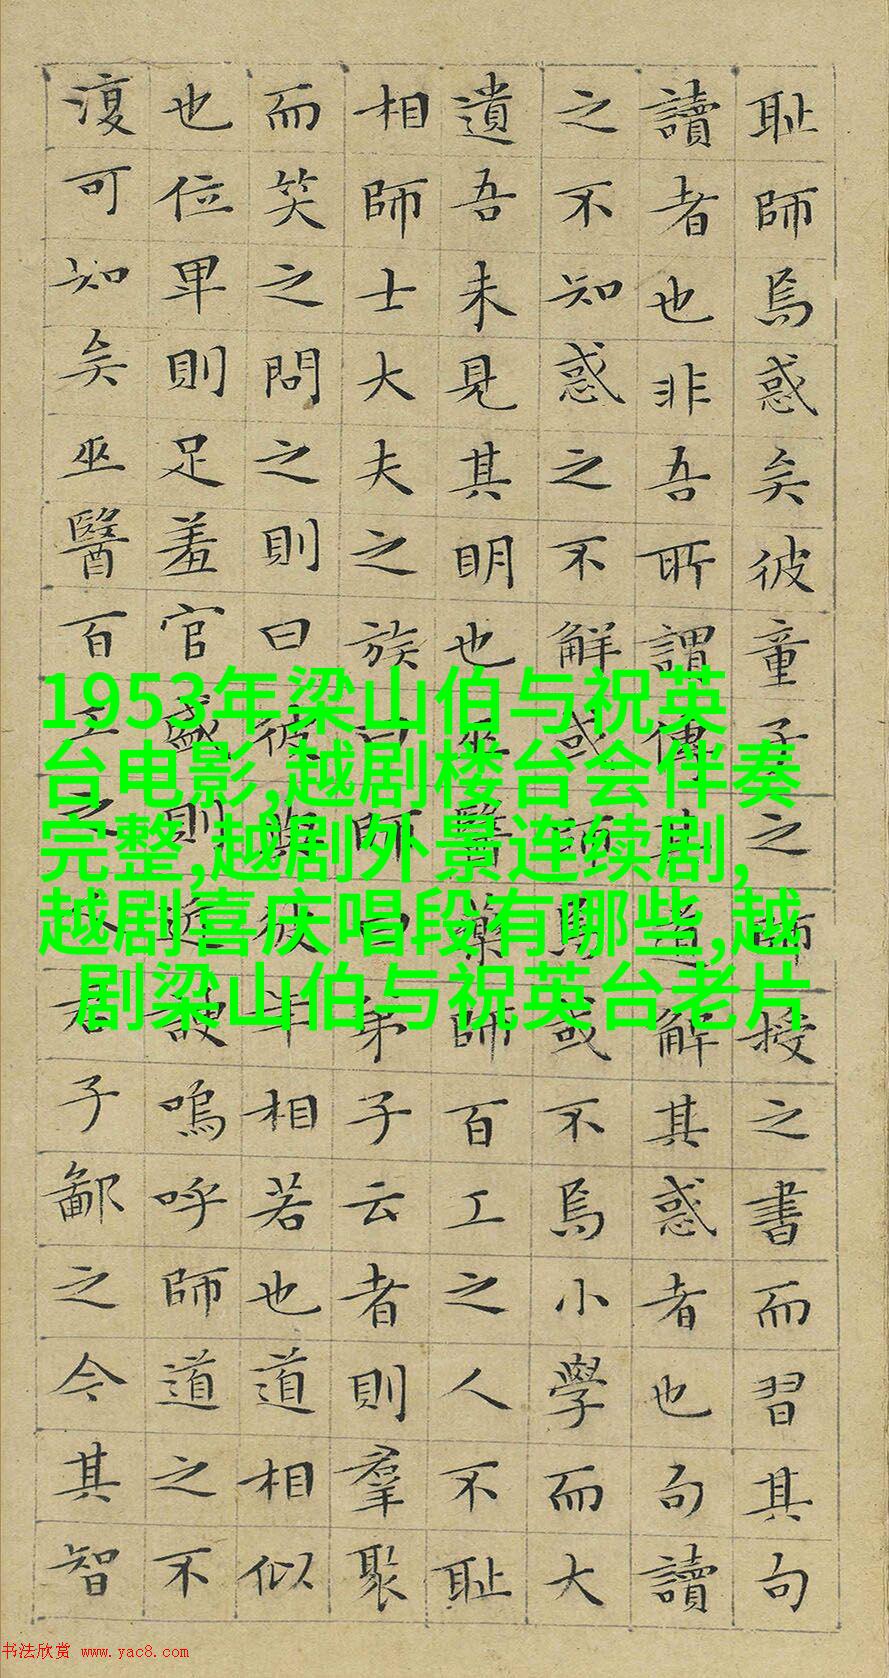 耻師焉惑矣彼童子之師授之書而習其句
讀者也非吾所謂傳其道解其惑者也句讀
之不知惑之不解或師焉或不焉小學而大
遺吾未見其明也巫醫藥師百工之人不耻
相師士大夫之族曰師曰弟子云者則羣聚
而笑之問之則曰彼與彼年相若也道相似
也位卑則足羞官盛則近諛嗚呼師道之不
復可知矣巫醫百工之人君子鄙之今其智
1953年梁山伯与祝英
台电影,越剧楼台会伴奏
完整,越剧外景连续剧,
越剧喜庆唱段有哪些,越
剧梁山伯与祝英台老片
书法欣赏 www.yac8.com